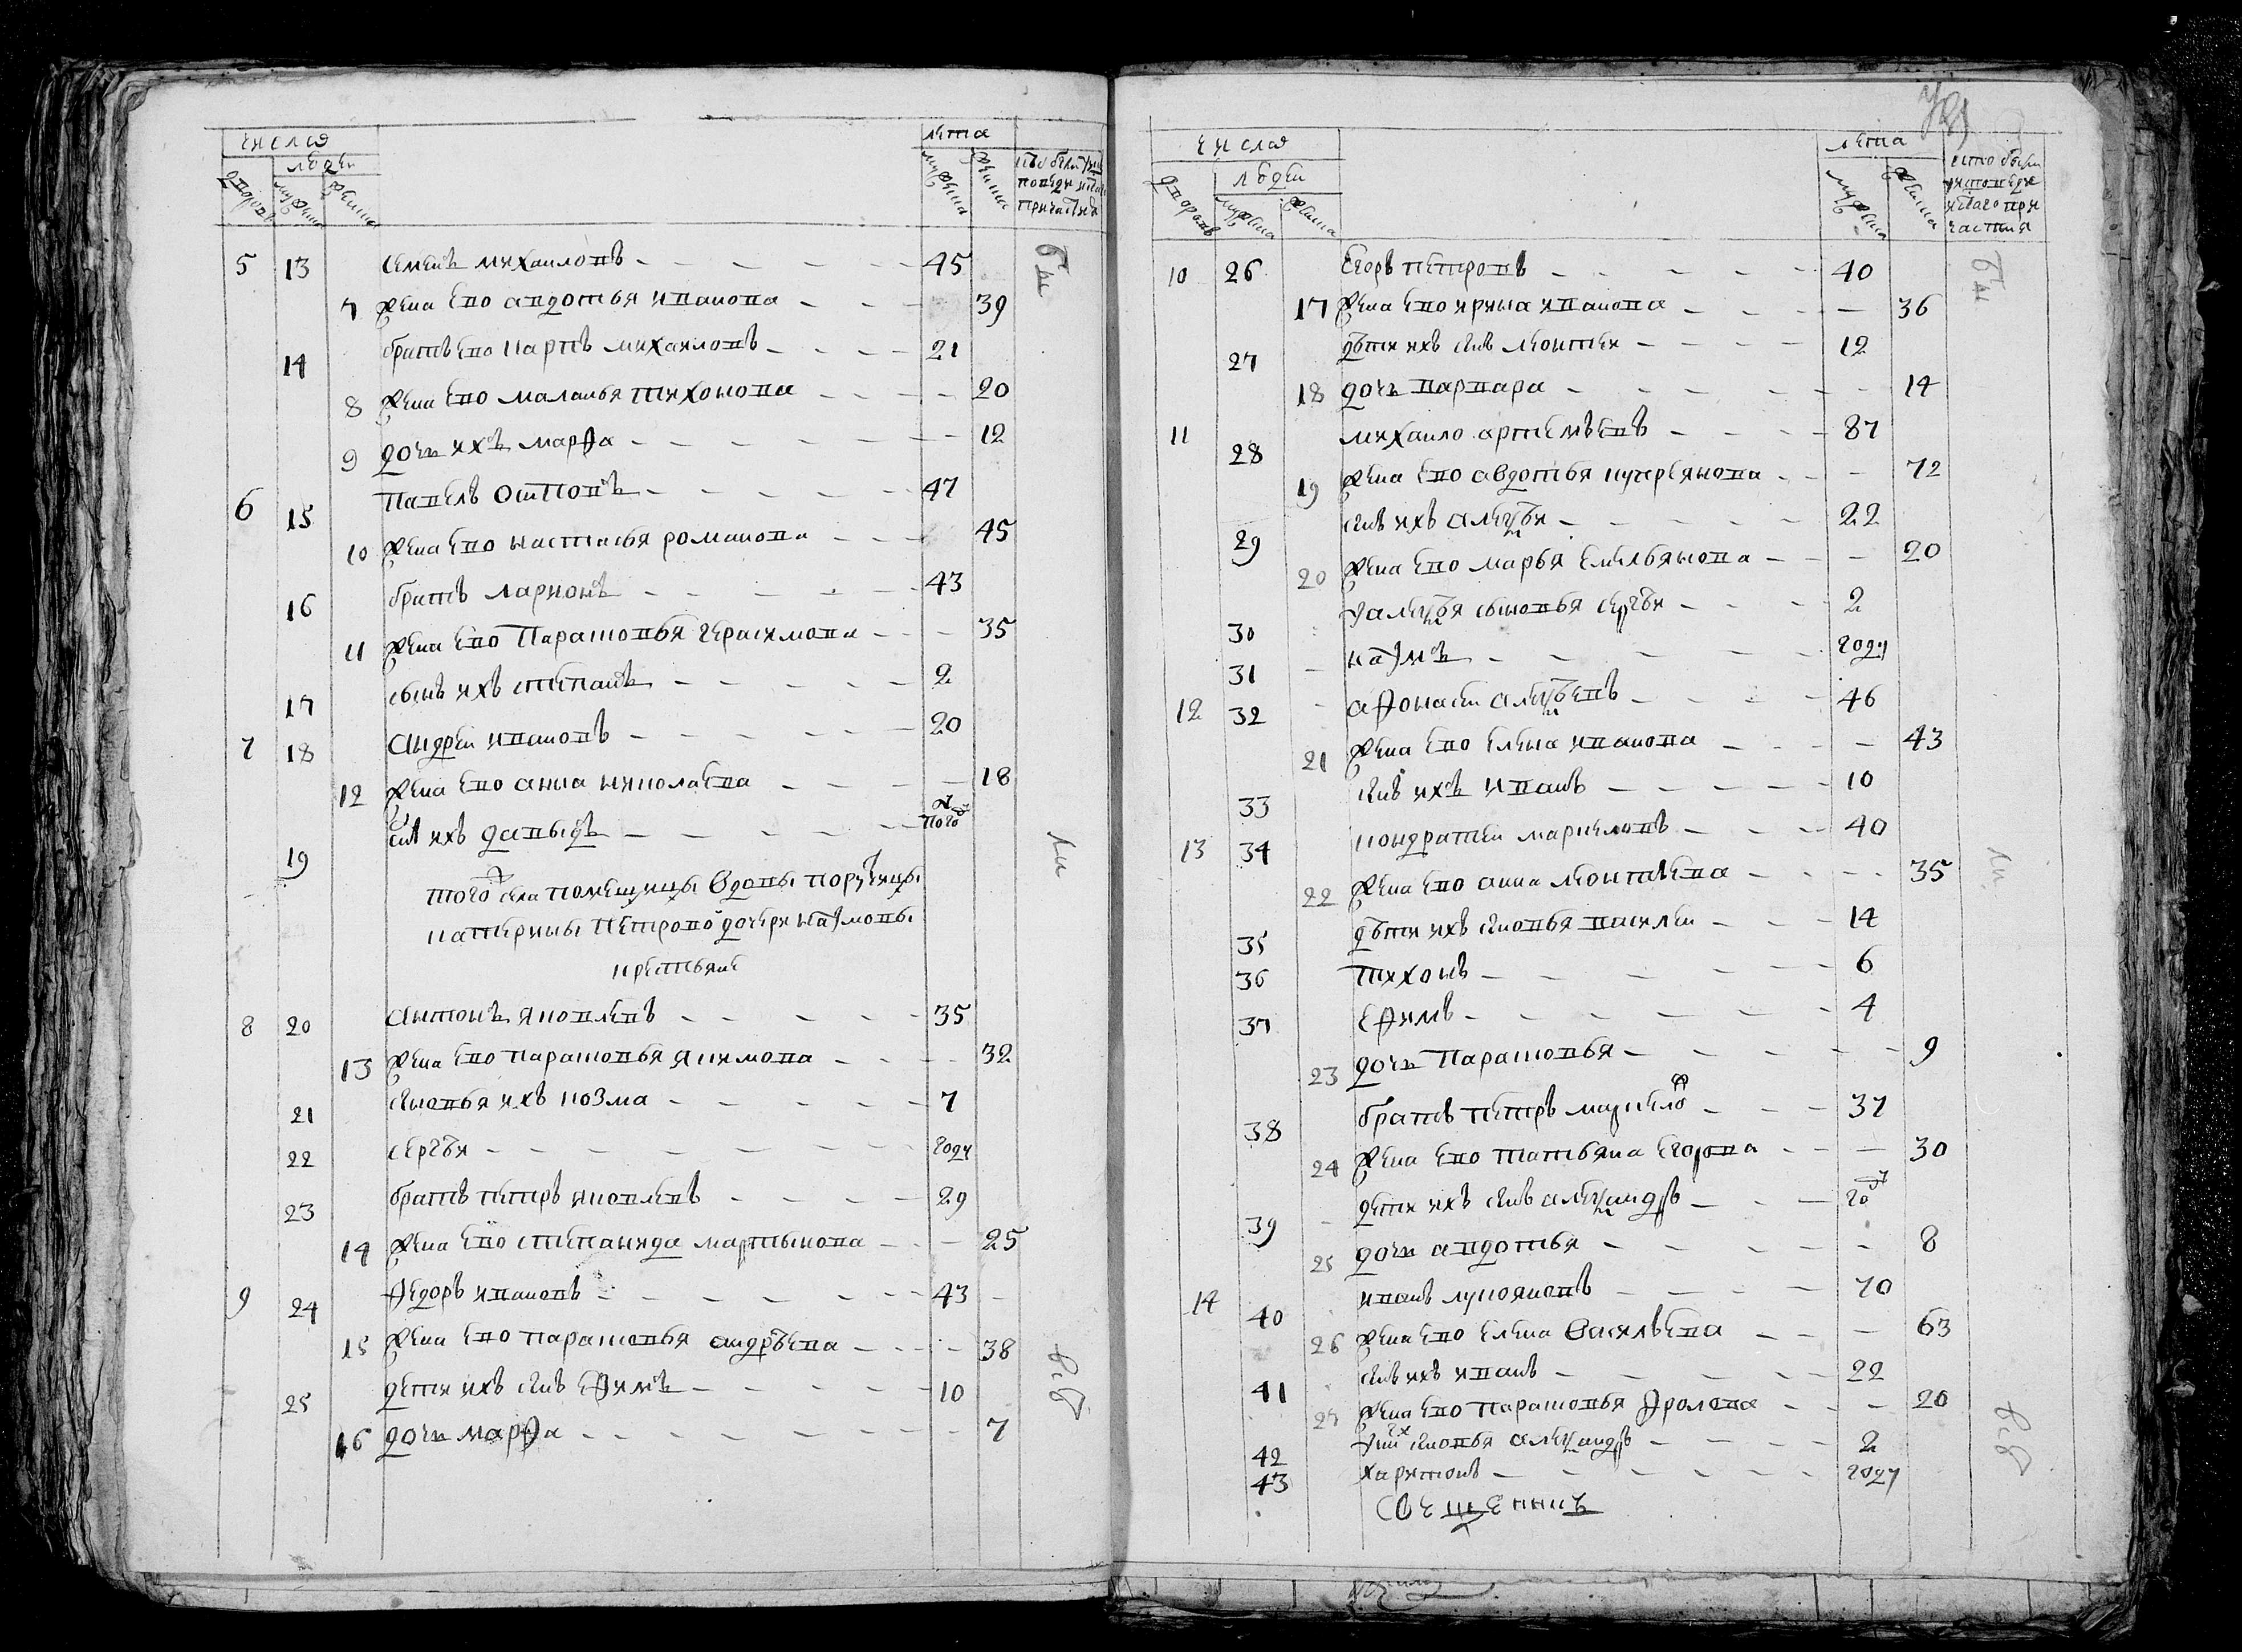 числа
людей
лета
дворовъ
мужеска
женска
мужеска
женска
кто были у исповеди и святаго причастия
5 13 семенъ михаиловъ 45
7 жена ево авдотья иванова 39
14 братъ ево карпъ михаиловъ 21
8 жена ево маланья тихонова 20
9 дочь ихъ марѳа 12
6 15 павелъ 47
10 жена ево настасья романова 45
16 братъ ларионъ 43
11 жена ево парасковья герасимова 35
17 сынъ ихъ степанъ 2
7 18 андреи ивановъ 20
12 жена ево анна николаева 18
19 снъ ихъ давыдъ
того села помещицы вдовы порутчицы
катерины петровои дочери наумовы
крестьяне
8 20 антонъ яковлевъ 35
13 жена ево парасковья якимова 32
21 сыновья ихъ козма 7
22 сергѣи году
23 братъ петръ яковлевъ 29
14 жена ево степанида мартынова 25
9 24 ѳедоръ ивановъ 43
15 жена ево парасковья андрѣева 38
25 дети ихъ снъ еѳимъ 10
16 дочь марѳа 7
бы
ли
всѣ
числа
людей
лета
дворовъ
мужеска
женска
мужеска
женска
кто были у исповеди и святаго причастия
10 26 егоръ петровъ 40
17 жена ево ирина иванова 36
27 дѣти ихъ снъ леонтеи 12
18 дочь варвара 14
11 28 михаило артемьевъ 87
19 жена ево авдотья кучерянова 72
29 снъ ихъ алеѯѣи 22
20 жена ево марья емельянова 20
30 у алеѯѣя сыновья сергѣи 2
31 наумъ году
12 32 аѳонасеи алеѯѣевъ 46
21 жена ево елена иванова 43
33 снъ ихъ иванъ 10
13 34 кондратеи маркеловъ 40
22 жена ево анна леонтьева 35
35 дѣти ихъ сновья василеи 14
36 тихонъ 6
37 еѳимъ 4
23 дочь парасковья 9
38 братъ петръ маркеловъ 37
24 жена ево татьяна егорова 30
39 дети ихъ снъ алеѯандръ году
25 дочь авдотья 8
14 40 иванъ лукояновъ 70
26 жена ево елена васильева 63
41 снъ ихъ иванъ 22
27 жена ево парасковья ѳролова 20
42 у нихъ сновья алеѯандръ 2
43 харитонъ году
бы
ли
всѣ
священникъ